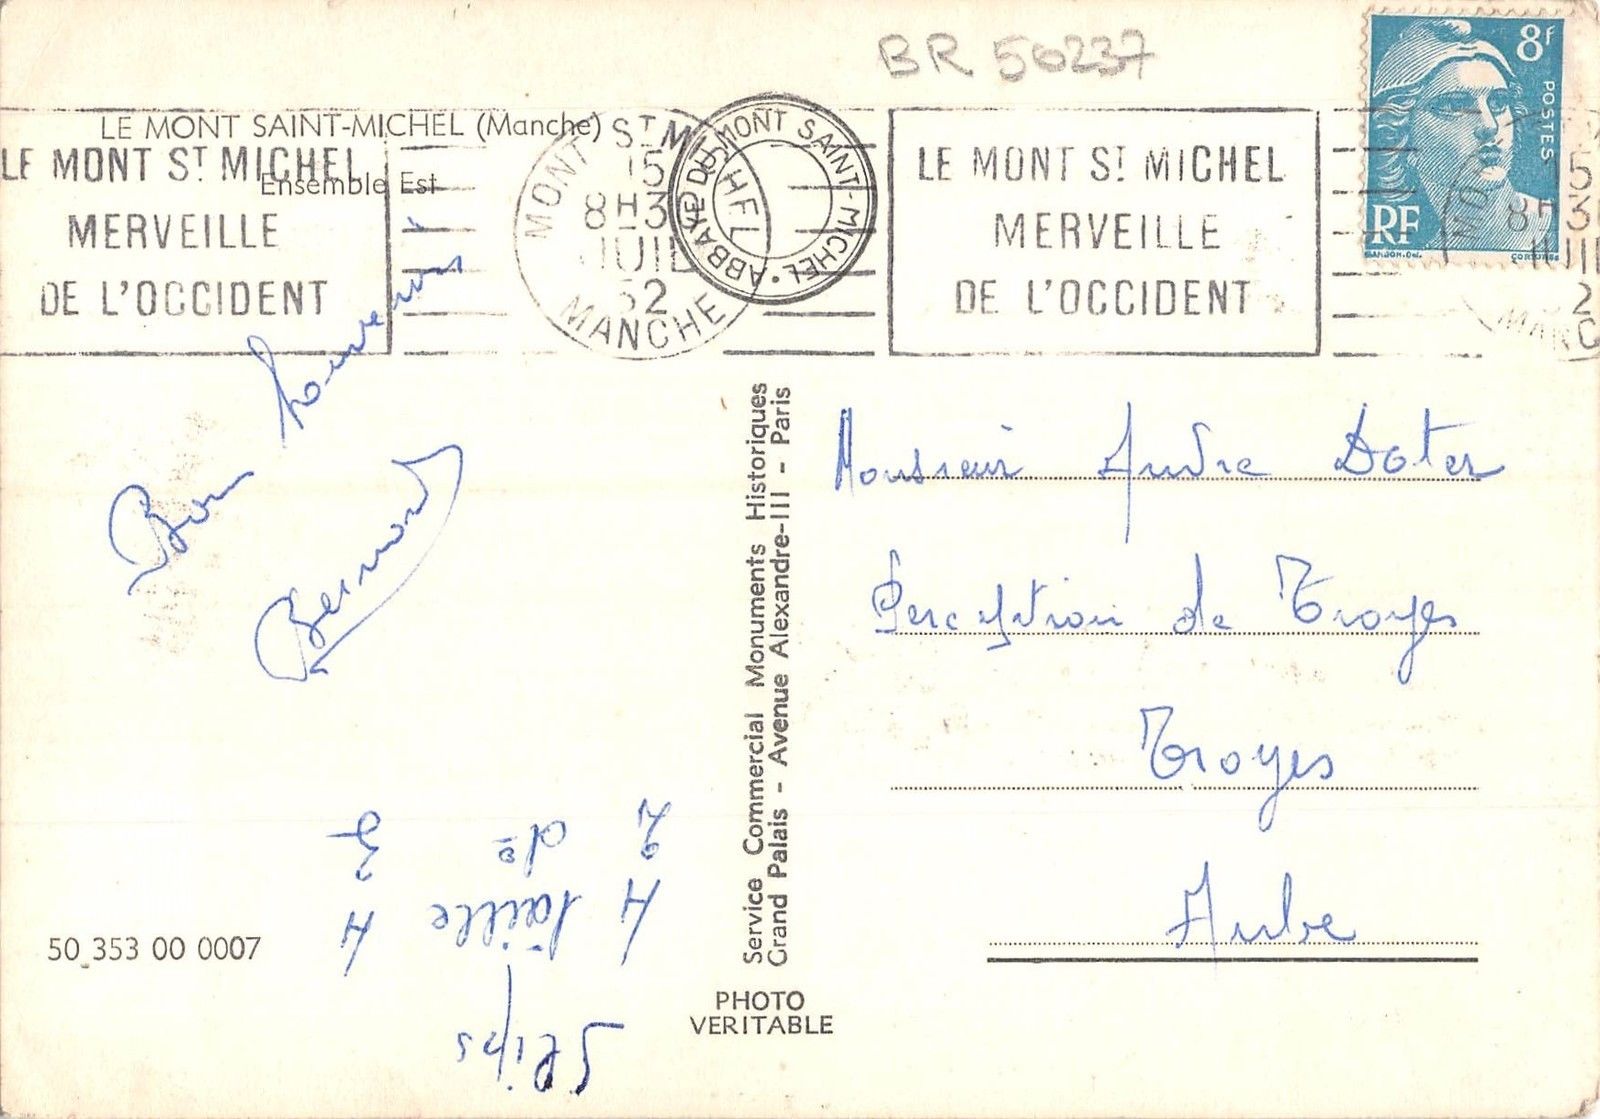 BR 56237
LE MONT SAINT-MICHEL (Manche)
Ensemble Est
LE MONT ST MICHEL
MERVEILLE
DE L'OCCIDENT
MONT ST MICHEL
15
8H30
JUIL
52
MANCHE
ABBAYE DU MONT SAINT-MICHEL
LE MONT ST MICHEL
MERVEILLE
DE L'OCCIDENT
8f
POSTES
RF
GANDON.Del.
CORTOT.Sc
15
8H3
JUIL
2
MANC
Bon souvenir
Bernard
Monsieur André Doter
Perception de Troyes
Troyes
Aube
Service Commercial Monuments Historiques
Grand Palais - Avenue Alexandre-III - Paris
PHOTO
VERITABLE
50_353 00 0007
Slips
4 taille 4
2 de 3